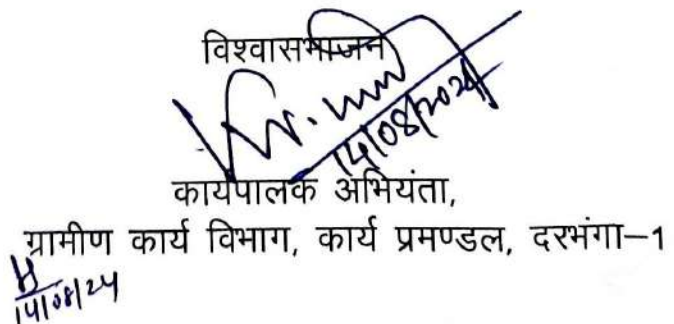 विश्वासभाजन
14/08/2024
कार्यपालक अभियंता,
ग्रामीण कार्य विभाग, कार्य प्रमण्डल, दरभंगा–1
14/08/24